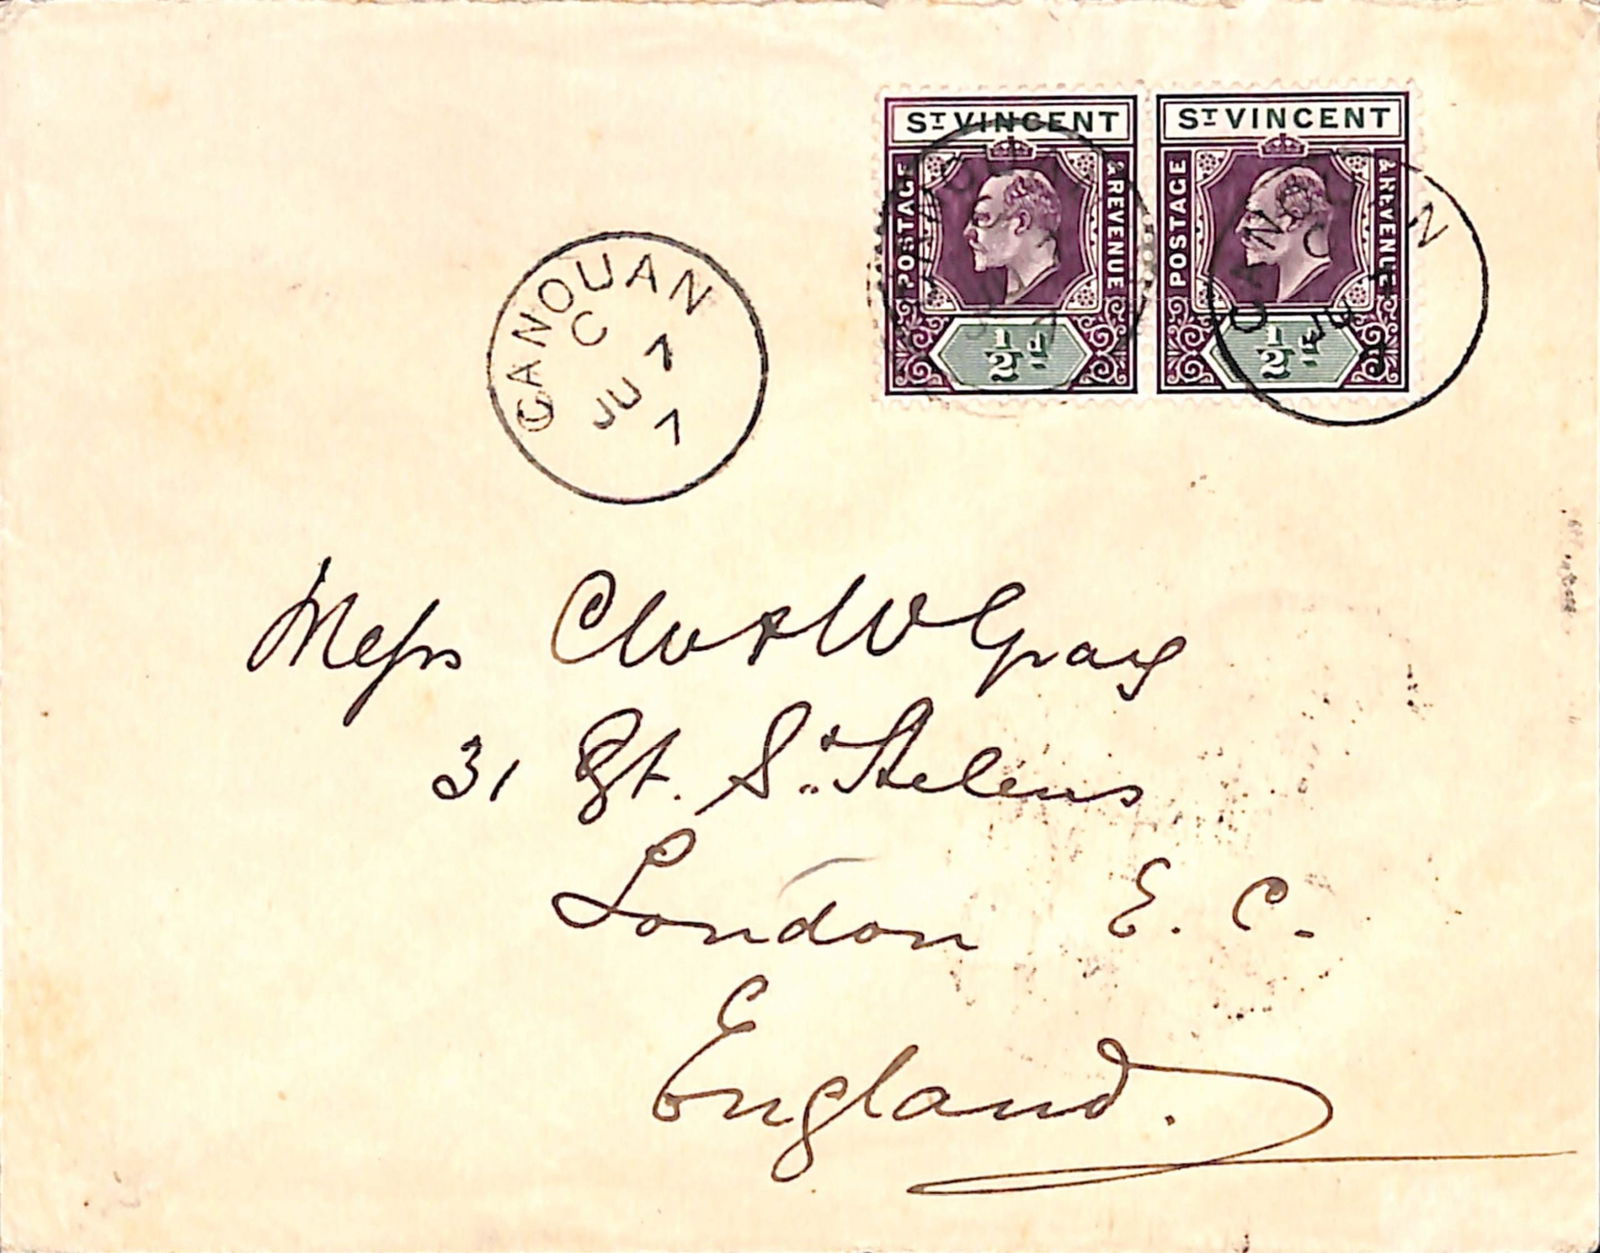 ST VINCENT
POSTAGE & REVENUE
½d
ST VINCENT
POSTAGE & REVENUE
½d
CANOUAN
C
JU
CANOUAN
C
JU 7
7
Mess
& W Gray
31 Gt. St. Helens
London E. C.
England.